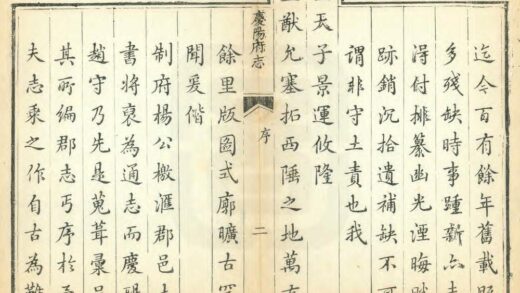 迄今百有餘年舊載
多殘缺時事踵新
淂付排纂幽光湮晦
跡銷沉拾遺補缺不可
謂非守土責也我
天子景運攸隆
猷允塞拓西陲之地萬
慶陽府志
序
二
餘里版圖式廓曠古
聞爰偕
制府楊公檄滙郡邑
書將裒為通志而慶
趙守乃先是蒐葺彙
其所編郡志丐序於
夫志乘之作自古為難